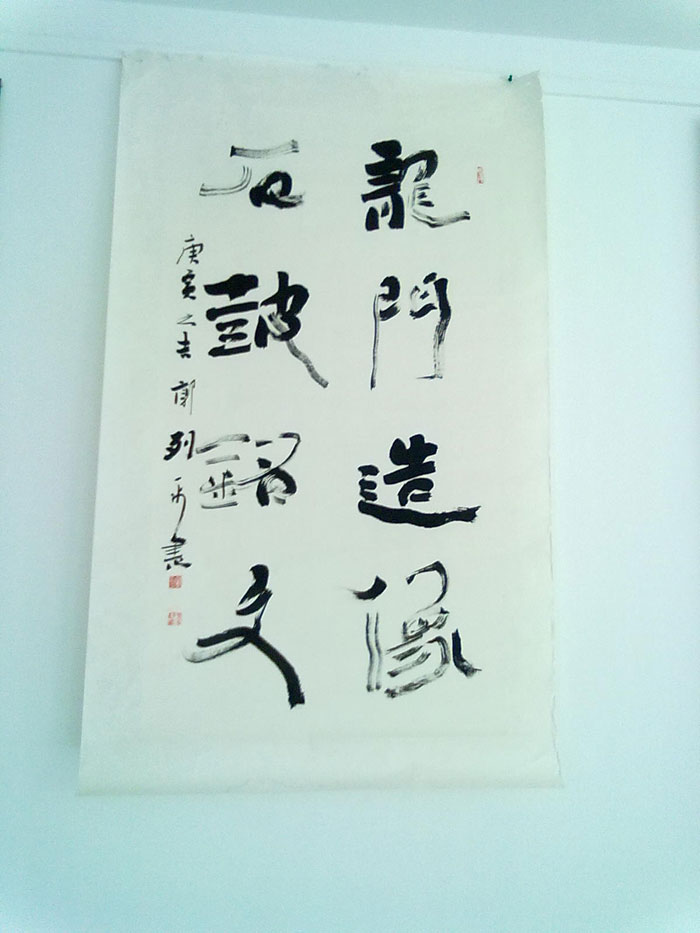 龍門造像
石鼓銘文
庚寅之吉 郭列平書